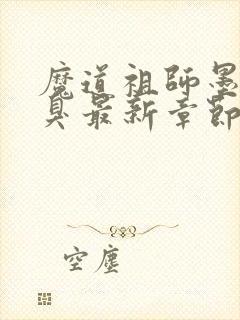 魔道祖師墨
臭最新章節
空塵